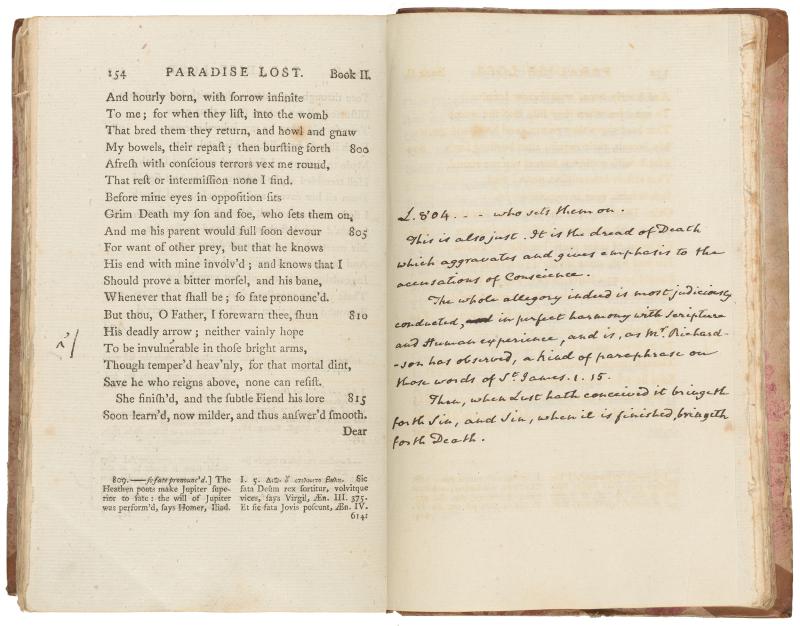 154 PARADISE LOST. Book II.
And hourly born, with ſorrow infinite
To me; for when they liſt, into the womb
That bred them they return, and howl and gnaw
My bowels, their repaſt; then burſting forth 800
Afreſh with conſcious terrors vex me round,
That reſt or intermiſſion none I find.
Before mine eyes in oppoſition ſits
Grim Death my ſon and foe, who ſets them on,
And me his parent would full ſoon devour 805
For want of other prey, but that he knows
His end with mine involv'd; and knows that I
Should prove a bitter morſel, and his bane,
Whenever that ſhall be; ſo fate pronounc'd.
But thou, O Father, I forewarn thee, ſhun 810
His deadly arrow; neither vainly hope
To be invulnerable in thoſe bright arms,
Though temper'd heav'nly, for that mortal dint,
Save he who reigns above, none can reſiſt.
She finiſh'd, and the ſubtle Fiend his lore 815
Soon learn'd, now milder, and thus anſwer'd ſmooth.
Dear
809. —ſo fate pronounc'd.] The
Heathen poets make Jupiter ſupe-
rior to fate: the will of Jupiter
was perform'd, ſays Homer, Iliad.
I. 5. Sic
fata Deûm rex ſortitur, volvitque
vices, ſays Virgil, Æn. III. 375.
Et ſic fata Jovis poſcunt, Æn. IV.
614:
L. 804. - - - who sets them on.
This is also just. It is the dread of Death
which aggravates and gives emphasis to the
accusations of Conscience.
The whole allegory indeed is most judiciously
conducted, in perfect harmony with Scripture
and Human experience, and is, as Mr. Richard-
-son has observed, a kind of paraphrase on
those words of St. James. 1. 15.
Then, when Lust hath conceived it bringeth
forth Sin, and Sin, when it is finished, bringeth
forth Death.